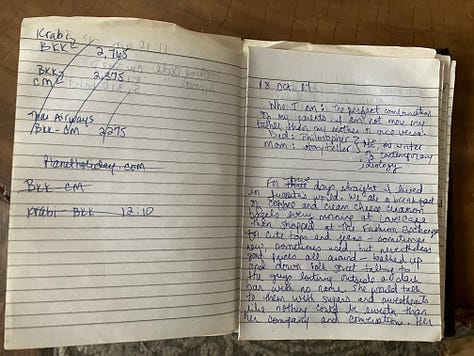 Krabi
BKK 2,765
BKK
CM 2,375
Thai Airways
BKK - CM 2275
Planetholiday.com
BKK - CM
Krabi - BKK 12:10
18 Oct.
Who I am: The perfect combination
of my parents. I am not more my
father than my mother or vice versa.
Dad: Philosopher
Mom: storyteller
ME, a writer
of contemporary
ideology
For days straight I lived
in world. We ate a breakfast
of coffee and cream cheese cinnamon
bagels every morning at Love Cafe
then shopped at the Fashion Exchange
for cute tops and jeans - sometimes
new, sometimes used but nevertheless
good prices all around - balled up
and down street talking to
the guys loitering outside a dark
bar with no name. She would talk
to them with sugars and sweethearts
like nothing could be sweeter than
her company and conversation. Her